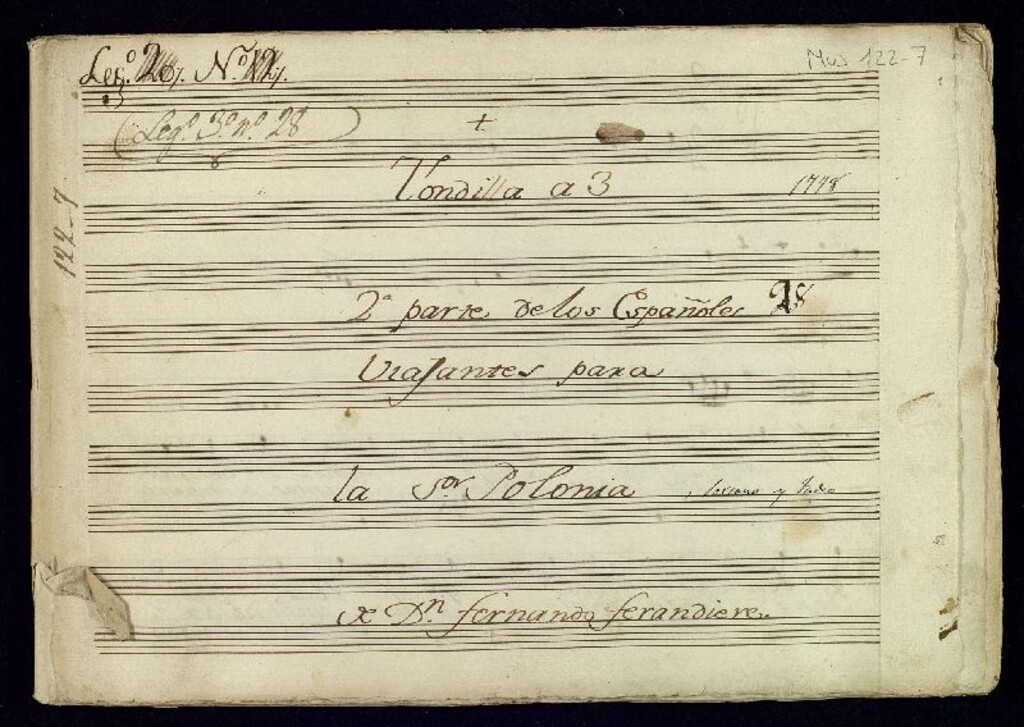 Leg.º 20. N.º 12.
Mus 122-7
Leg.º 3.º n.º 28
+
Tondilla a 3 1778
122-7
2ª parte de los Españoles 28
Viajantes para
la S.ra Polonia, y
de D.n fernando ferandiere